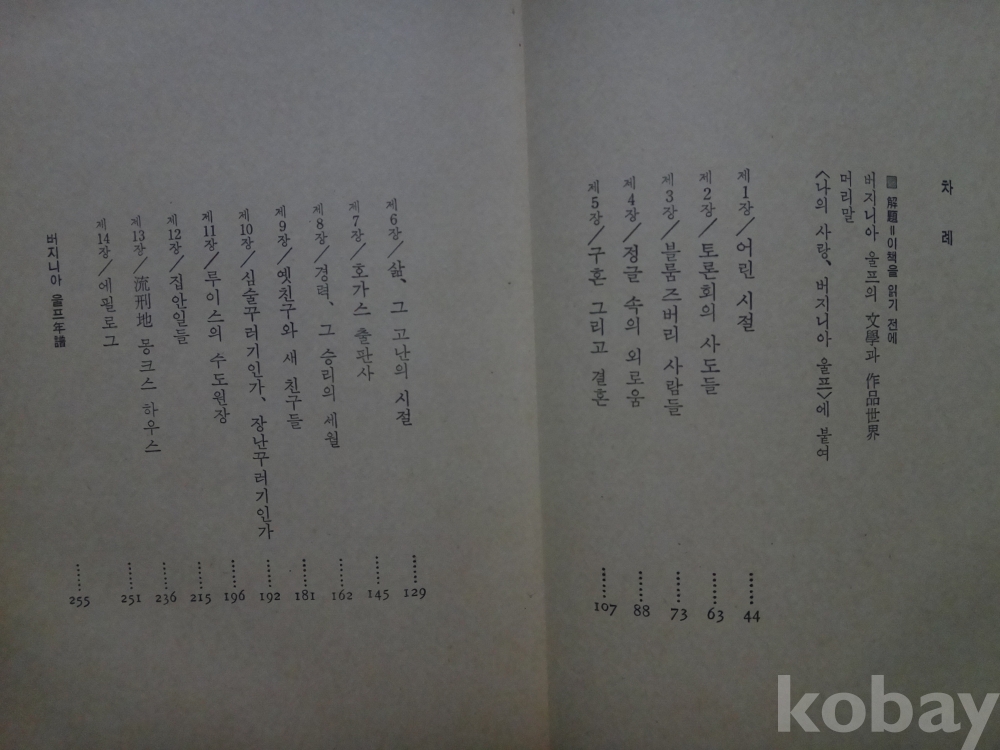 차 례
▤ 解題=이 책을 읽기 전에
버지니아 울프의 文學과 作品世界
머리말
<나의 사랑, 버지니아 울프>에 붙여
제1장/어린 시절 …… 44
제2장/토론회의 사도들 …… 63
제3장/블룸즈버리 사람들 …… 73
제4장/정글 속의 외로움 …… 88
제5장/구혼 그리고 결혼 …… 107
제6장/삶, 그 고난의 시절 …… 129
제7장/호가스 출판사 …… 145
제8장/경력, 그 승리의 세월 …… 162
제9장/옛친구와 새 친구들 …… 181
제10장/심술꾸러기인가, 장난꾸러기인가 …… 192
제11장/루이스의 수도원장 …… 196
제12장/집안일들 …… 215
제13장/流刑地 몽크스 하우스 …… 236
제14장/에필로그 …… 251
버지니아 울프年譜 …… 255
kobay